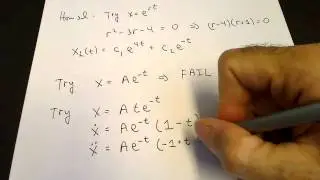 Homsol: Try x=e^{rt}
r²-3r-4 = 0 ⇒ (r-4)(r+1)=0
X_h(t) = c₁e^{4t} + c₂e^{-t}
Try X = Ae^{-t} ⇒ FAIL
Try X = Ate^{-t}
Ẋ = Ae^{-t} (1-t)
Ẍ = Ae^{-t} (-1+t